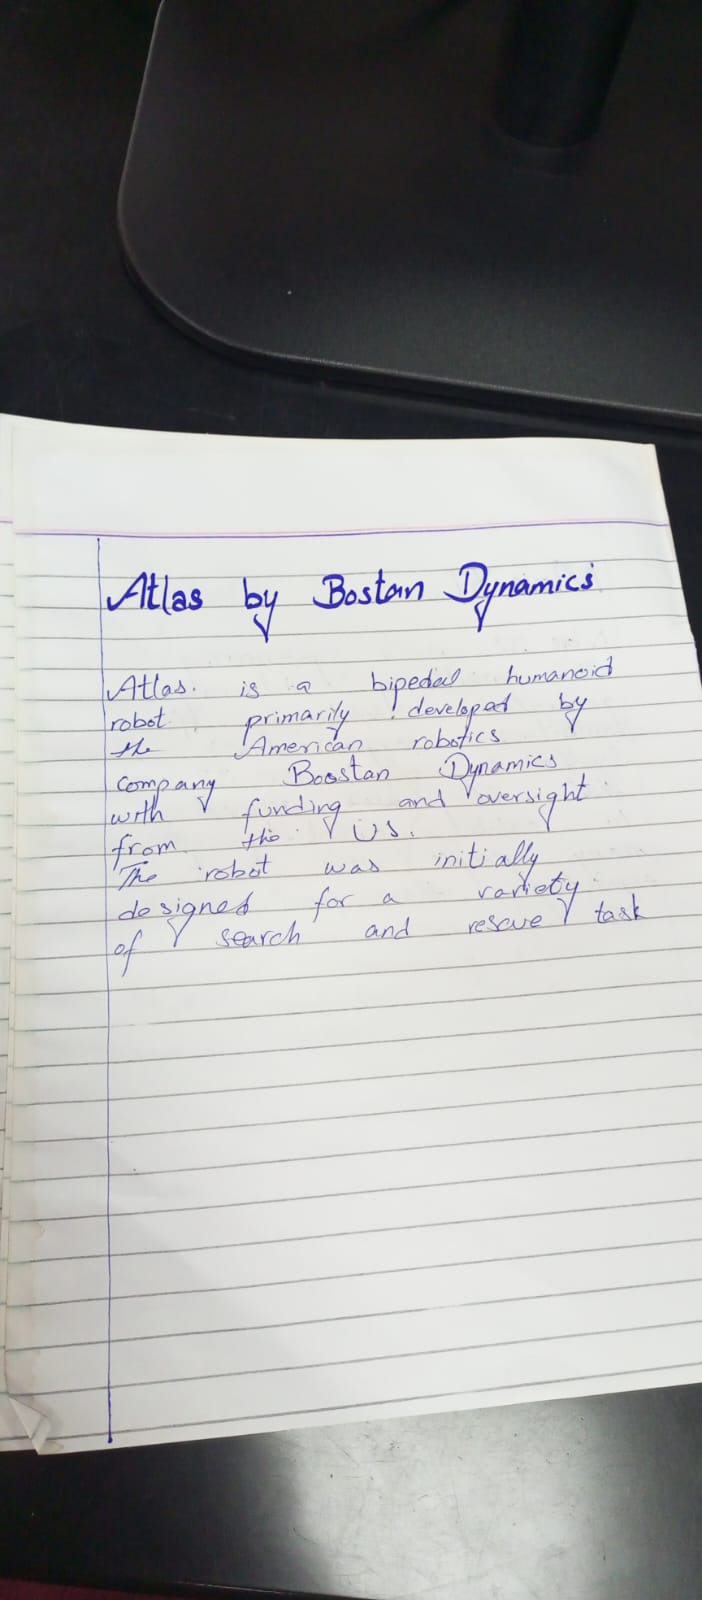 Atlas by Bostan Dynamics
Atlas. is a bipedal humanoid
robot primarily developed by
the American robotics
company Boostan Dynamics
with funding and oversight
from the US.
The robot was initially
designed for a variety
of search and rescue task